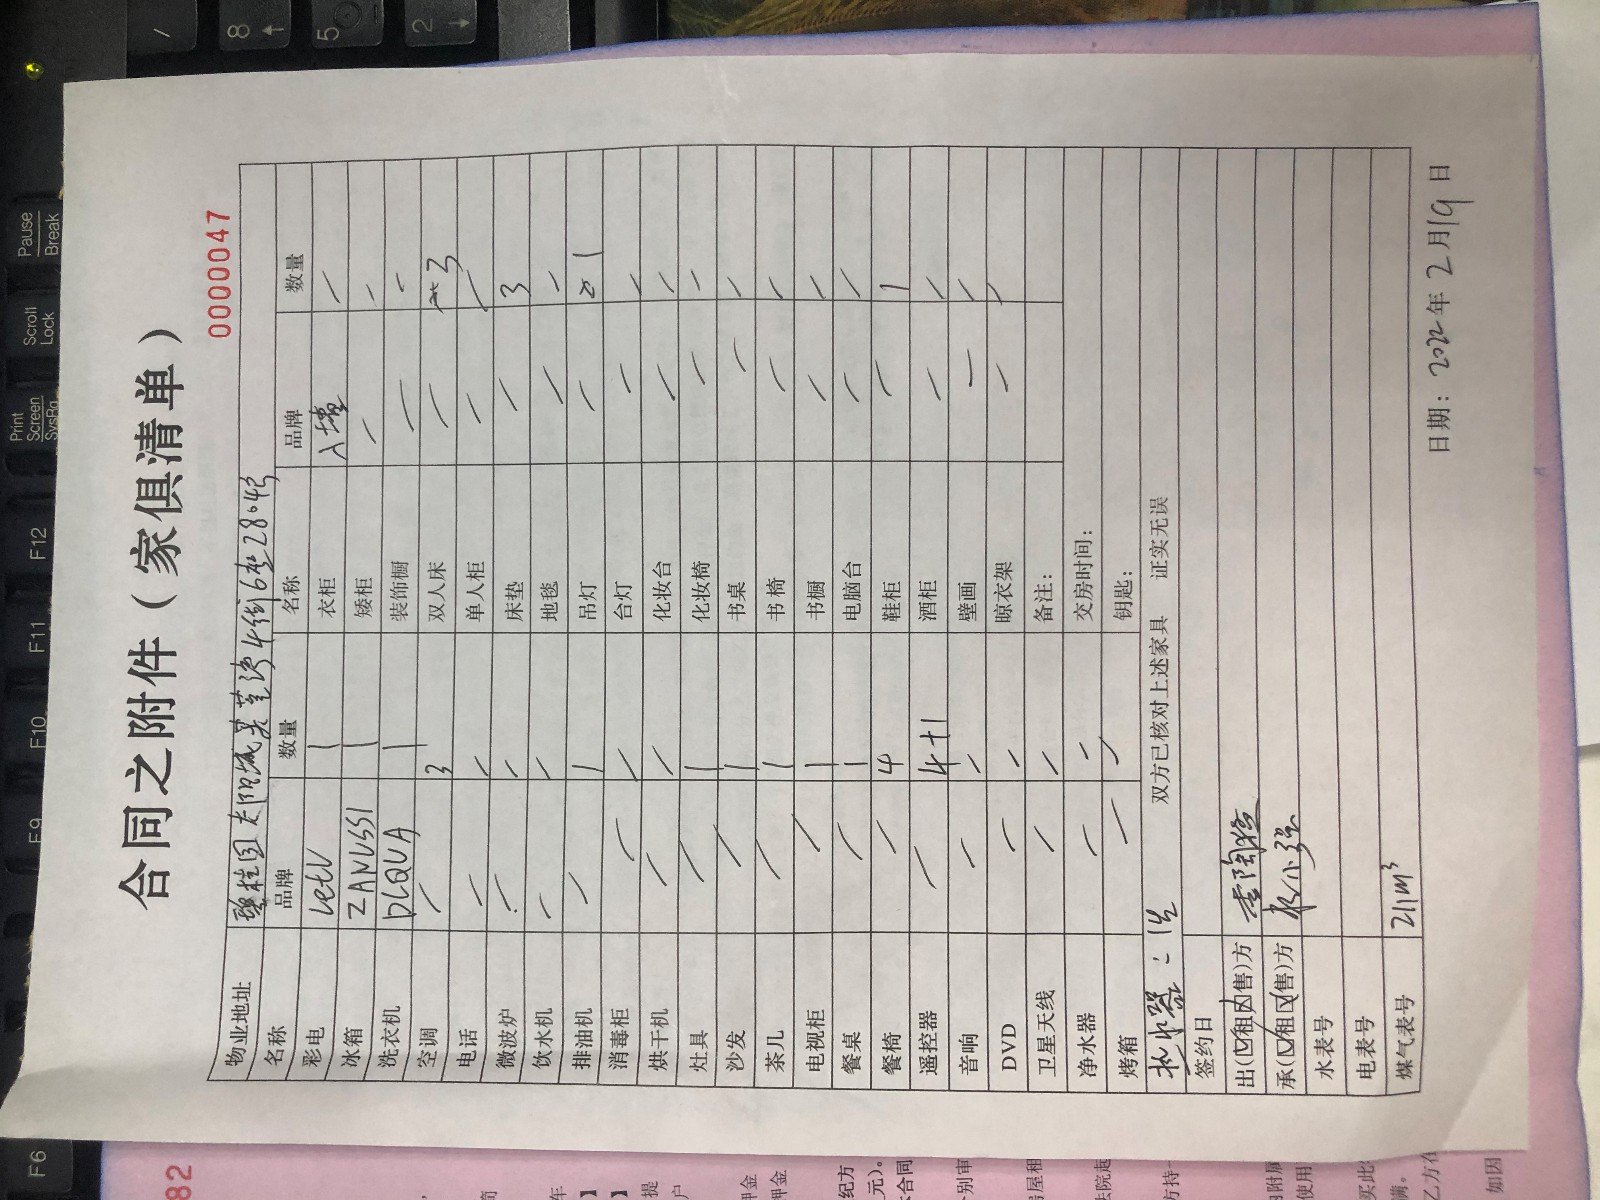 合同之附件（家俱清单）
0000047
物业地址 碧桂园太阳城芙蓉湾4街6座2804号
名称 品牌 数量 名称 品牌 数量
彩电 Letv 1 衣柜 入墙 /
冰箱 ZANUSSI 1 矮柜 / /
洗衣机 DLQUA 1 装饰橱 / /
空调 / 3 双人床 / 3
电话 / / 单人柜 / /
微波炉 / / 床垫 / 3
饮水机 / / 地毯 / /
排油机 / 1 吊灯 / 1
消毒柜 / / 台灯 / /
烘干机 / / 化妆台 / /
灶具 / 1 化妆椅 / /
沙发 / 1 书桌 / /
茶几 / 1 书椅 / /
电视柜 / 1 书橱 / /
餐桌 / 1 电脑台 / /
餐椅 / 4 鞋柜 / 1
遥控器 / 4+1 酒柜 / /
音响 / / 壁画 / /
DVD / / 晾衣架 / /
卫星天线 / / 备注：
净水器 / / 交房时间：
烤箱 / / 钥匙：
热水器：1台 双方已核对上述家具 证实无误
签约日
出(☑租☐售)方
承(☑租☐售)方
水表号
电表号
煤气表号 211m³
日期：2022年2月19日
Print Screen SysRq
Scroll Lock
Pause Break
F6
F9
F10
F11
F12
/
8
5
2
82